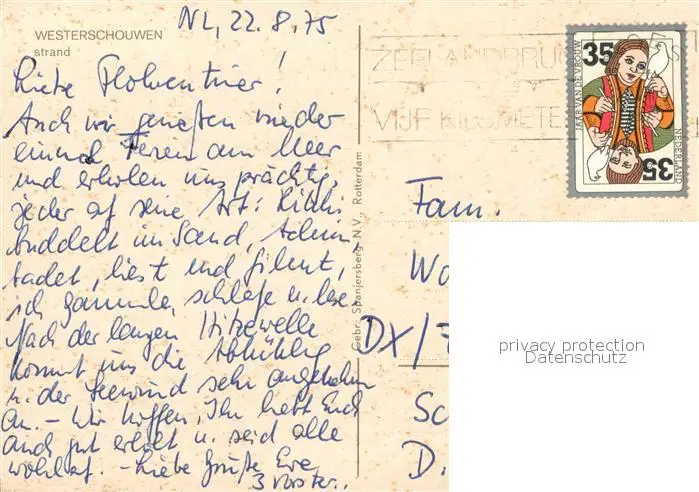 WESTERSCHOUWEN
strand
NL, 22.8.75
Liebe !
Auch wir genießen wieder
einmal Ferien am Meer
und erholen uns prächtig,
jeder auf seine Art:
buddelt im Sand,
badet, liest und filmt,
ich gammle, schlafe u. lese.
Nach der langen Hitzewelle
kommt uns die Abkühlg
u. der Seewind sehr angenehm
an. – Wir hoffen, Ihr habt Euch
auch gut erholt u. seid alle
wohlauf. – Liebe Grüße
Gebr. Spanjersberg N.V., Rotterdam
ZEELANDBRUG
VIJF KILOMETER
35
JAAR VAN DE VROUW
NEDERLAND
35
Fam.
DX/7
Sc
D.
privacy protection
Datenschutz